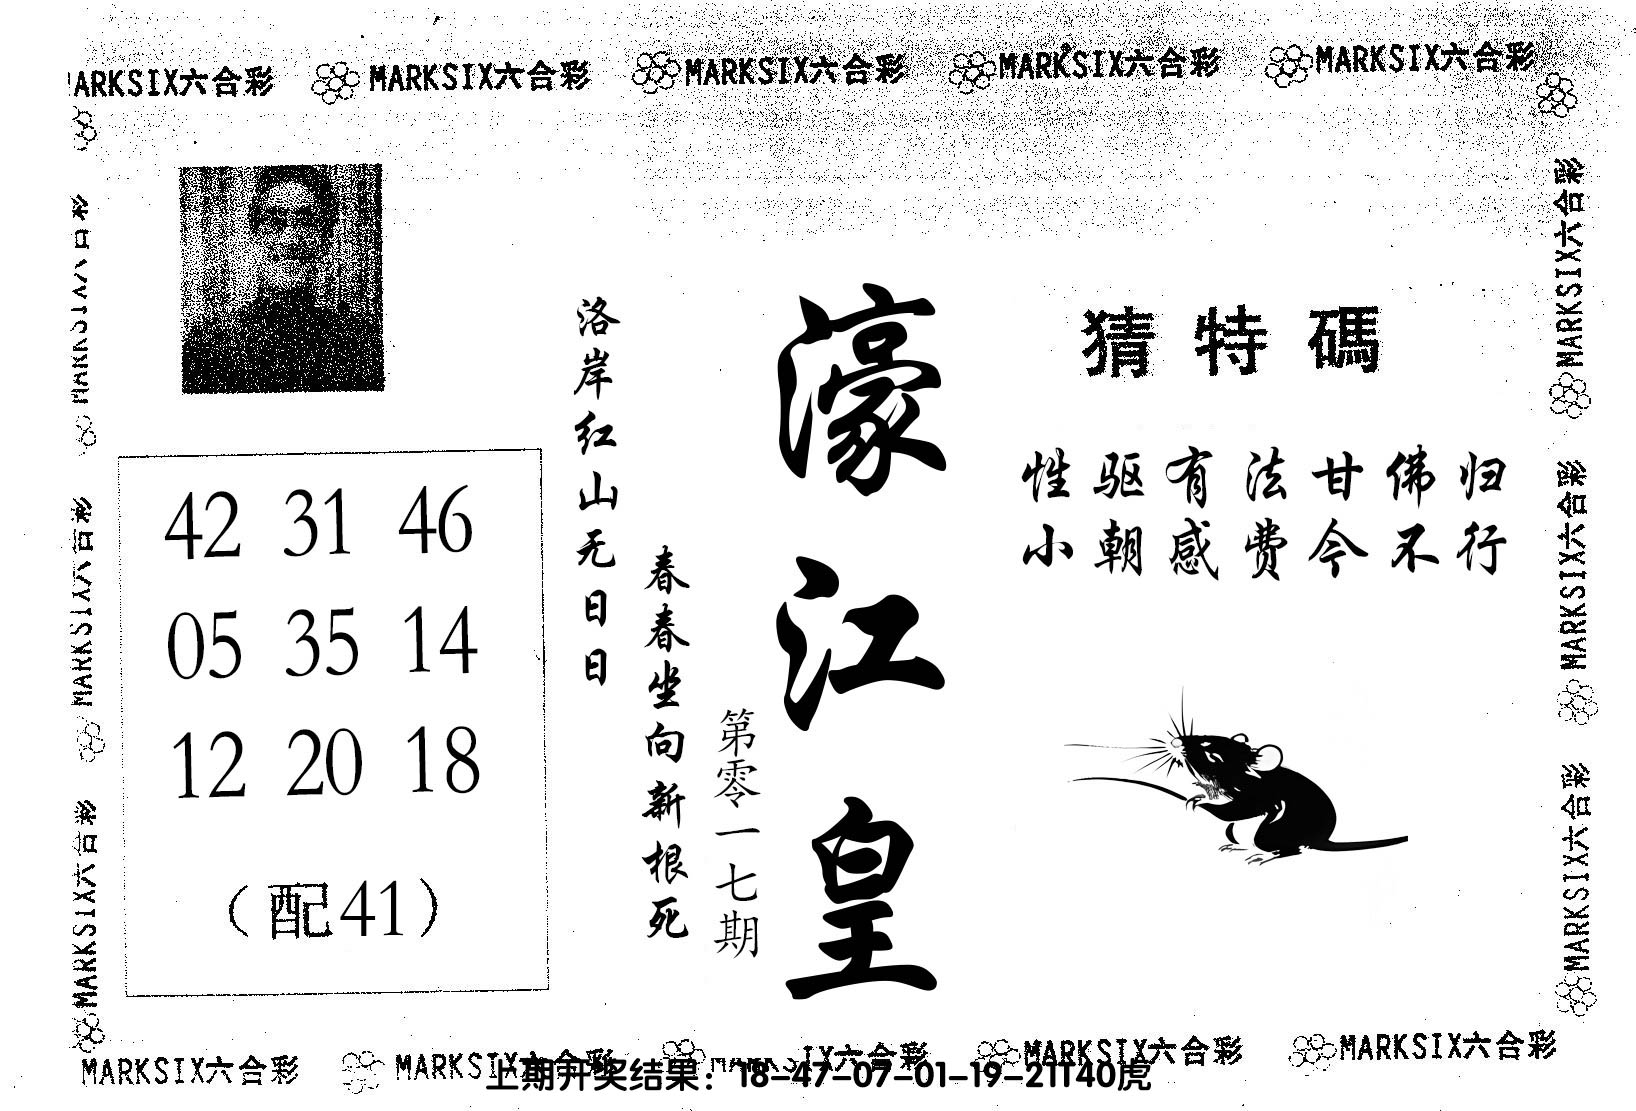 MARKSIX六合彩 MARKSIX六合彩 MARKSIX六合彩 MARKSIX六合彩
ARKSIX六合彩
猜特碼
性驱有法甘佛归
小朝感费今不行
濠江皇
第零一七期
春春坐向新根死
洛岸红山无日日
42 31 46
05 35 14
12 20 18
（配41）
MARKSIX六合彩
MARKSIX六合彩
MARKSIX六合彩
MARKSIX六合彩
MARKSIX六合彩
MARKSIX六合彩
MARKSIX六合彩 MARKSIX六合彩 六合彩 MARKSIX六合彩 MARKSIX六合彩
上期开奖结果：18-47-07-01-19-21T40虎